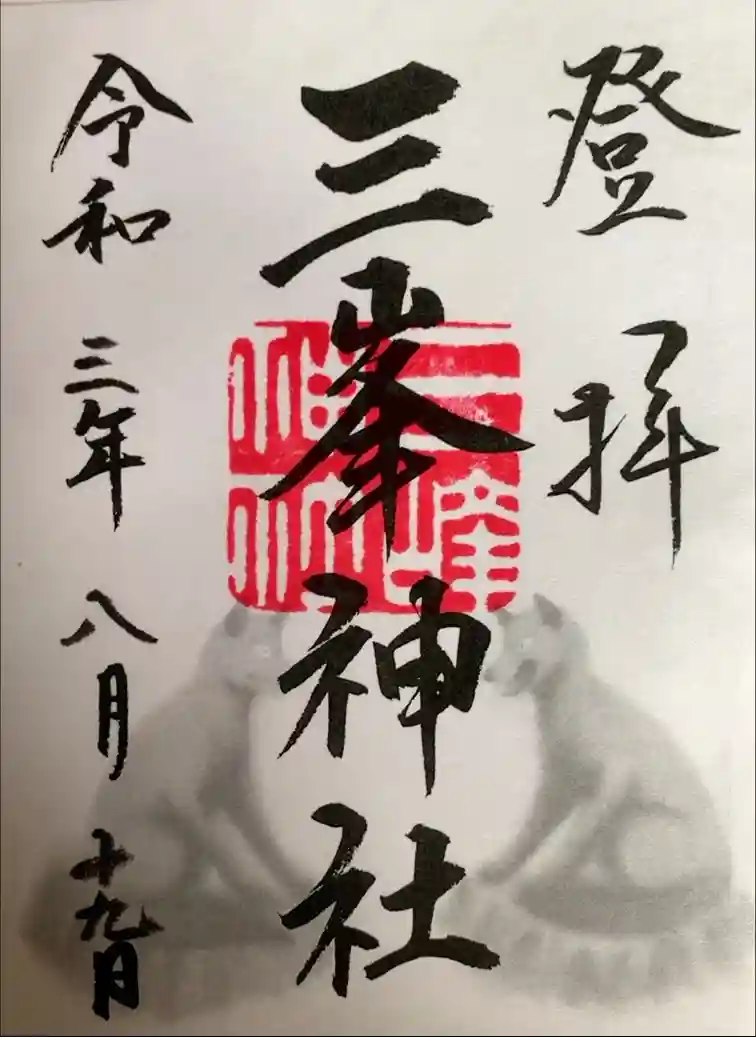 登拝
三峯神社
令和三年八月十九日